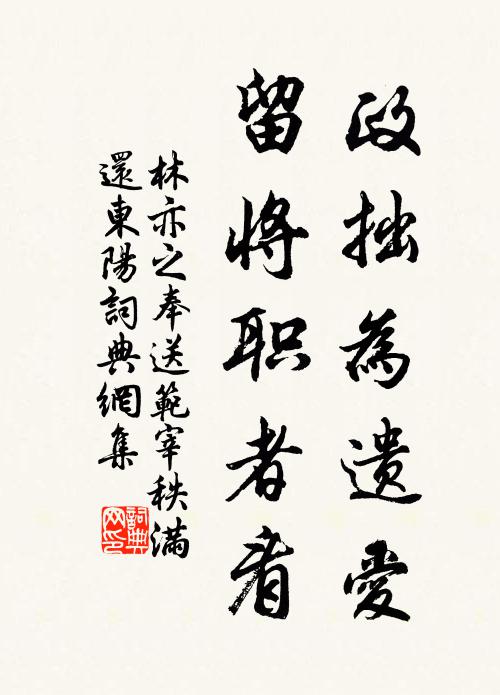 政拙為遗愛
留将职者看
林亦之奉送範宰秩滿
還東陽詞典網集
詞典
网印